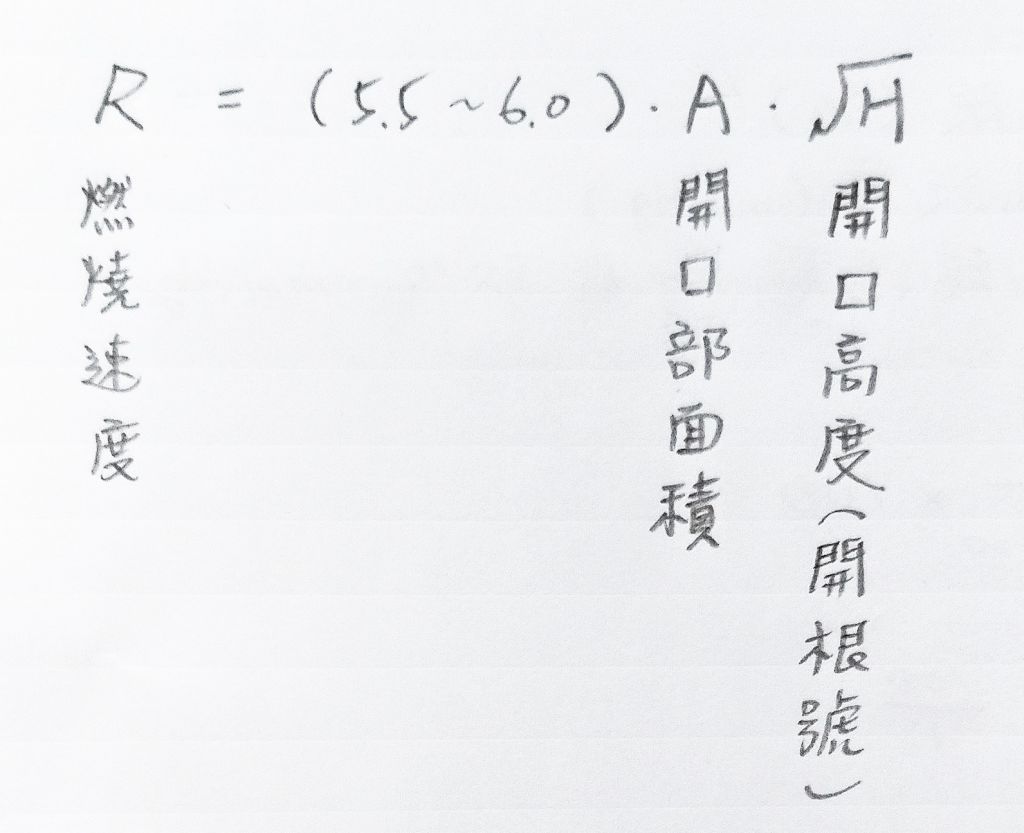 R = (5.5~6.0)·A·√H
燃燒速度
開口部面積
開口高度(開根號)